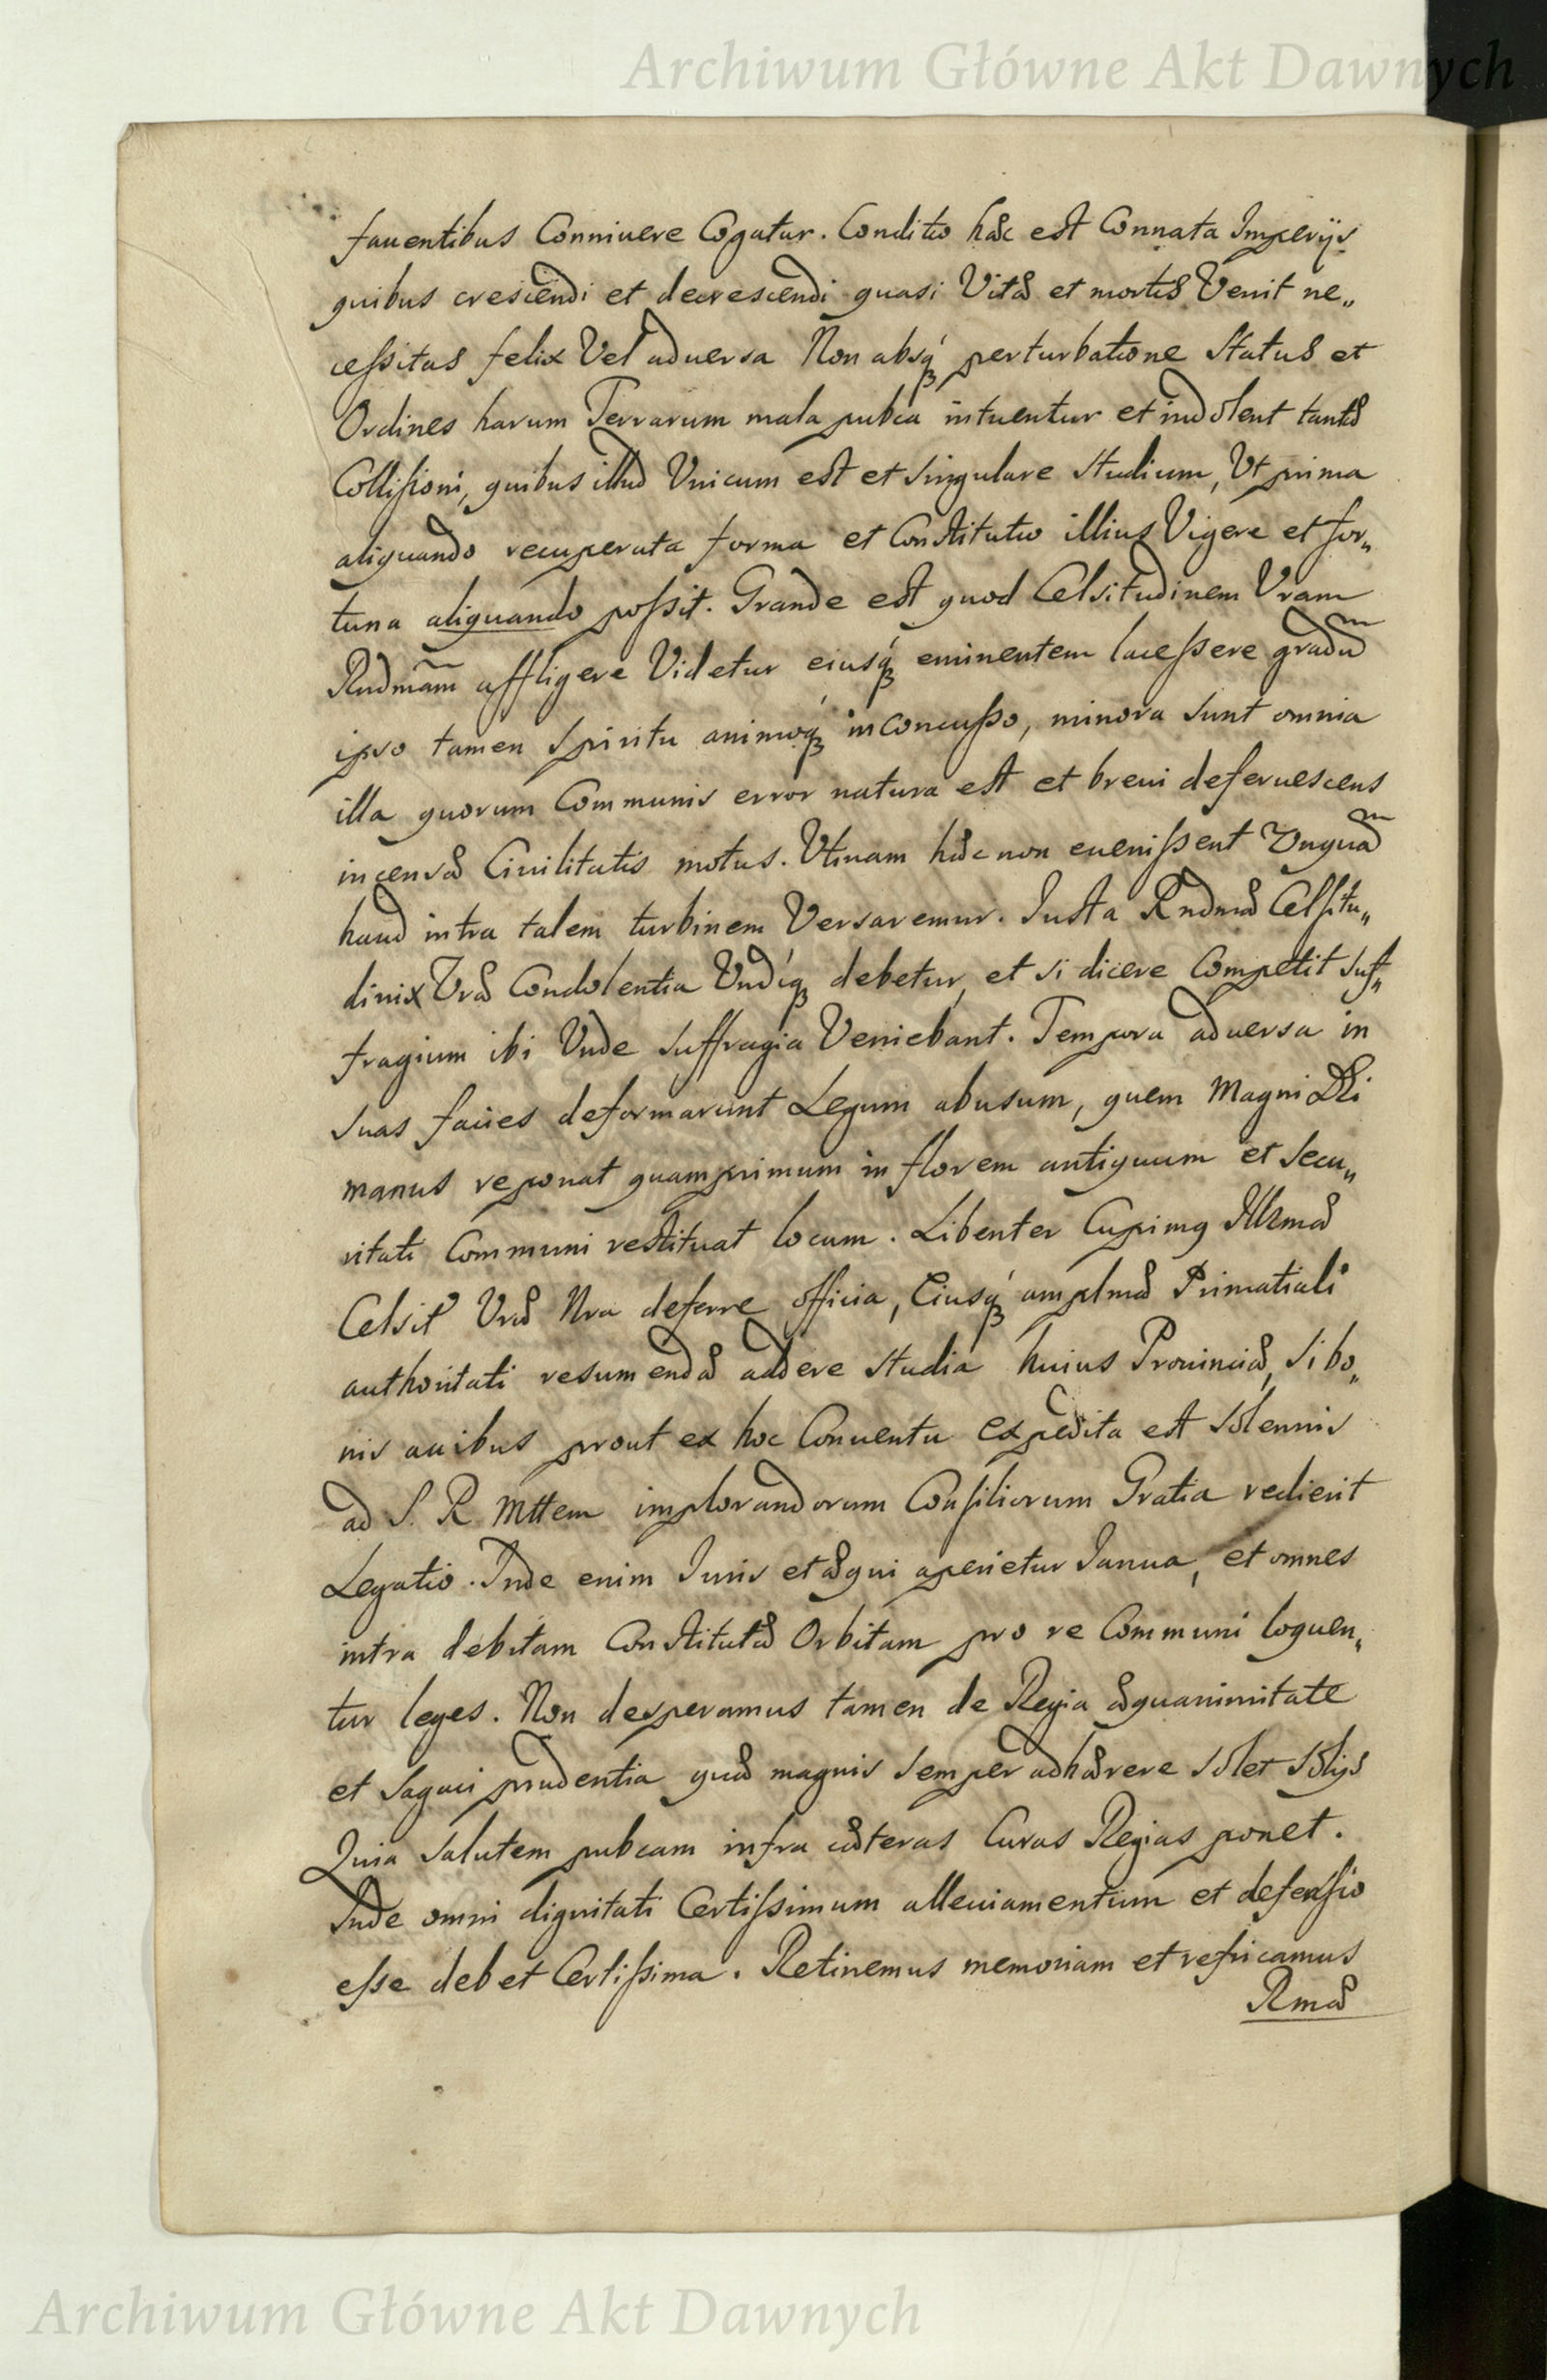 Archiwum Główne Akt Dawnych
fauentibus Conniuere Cogatur. Conditio hæc est Connata Imperijs
quibus crescendi et decrescendi quasi Vitæ et mortis Venit ne„
cessitas felix Vel aduersa Non absq́ perturbatione Status et
Ordines harum Terrarum mala pubca intuentur et indolent tantæ
Collisioni, quibus illud Vnicum est et singulare studium, Vt prima
aliquando recuperata forma et Constitutio illius Vigere et for„
tuna aliquando possit. Grande est quod Celsitudinem Vram
Rndmam affligere Videtur eiusq́ eminentem lacessere gradum
ipso tamen Spiritu animoq́ inconcusso, minora sunt omnia
illa quorum Communis error natura est et breui deferuescens
incensæ Ciuilitatis motus. Vtinam hæc non euenissent Vnquam
haud intra talem turbinem Versaremur. Iusta Rndmæ Celsitu„
dinix Vræ Condolentia Vndiq́ debetur, et si dicere Competit suf„
fragium ibi Vnde suffragia Veniebant. Tempora aduersa in
suas facies deformarunt Legum abusum, quem Magni Dei
manus reponat quamprimum in florem antiquum et secu„
ritati Communi restituat locum. Libenter Cupimg Illrmæ
Celsit Vræ Nra deferre officia, Eiusq́ amplmæ Primatiali
authoritati resumendæ addere studia huius Prouinciæ, si bo„
nis auibus prout ex hoc Conuentu expedita est Solennis
ad S. R. Mttem implorandorum Consiliorum Gratia redierit
Legatio. Inde enim Iuris et æqui aperietur Ianua, et omnes
intra debitam Constitutæ Orbitam pro re Communi loquen„
tur leges. Non desperamus tamen de Regia æquanimitate
et sagaci prudentia quæ magnis semper adhærere solet Solijs
Quia salutem pubcam infra cæteras Curas Regias ponet.
Inde omni dignitati Certissimum alleuiamentum et defensio
esse debet Certissima. Retinemus memoriam et refricamus
Rmæ
Archiwum Główne Akt Dawnych